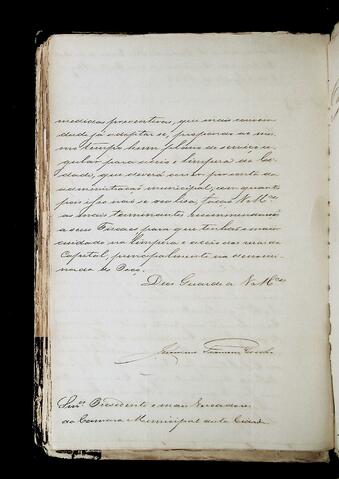 medidas preventivas, que mais convem
desde já adoptar-se, propondo ao mes-
mo tempo hum plano de serviço re-
gular para o aceio e limpeza da Ci-
dade, que deverá correr por conta da
administração municipal; em quanto
porém isso não se realisa, fação VV. Mces
as mais terminantes recommendaçõ
a seos Fiscaes para que tenhão o maior
cuidado na limpeza e aceio das ruas da
Capital, principalmente na denomi-
nada do Poço.
Deos Guarde a VV. Mces
Snres Presidente e mais Vereadores
da Camara Municipal desta Cidade